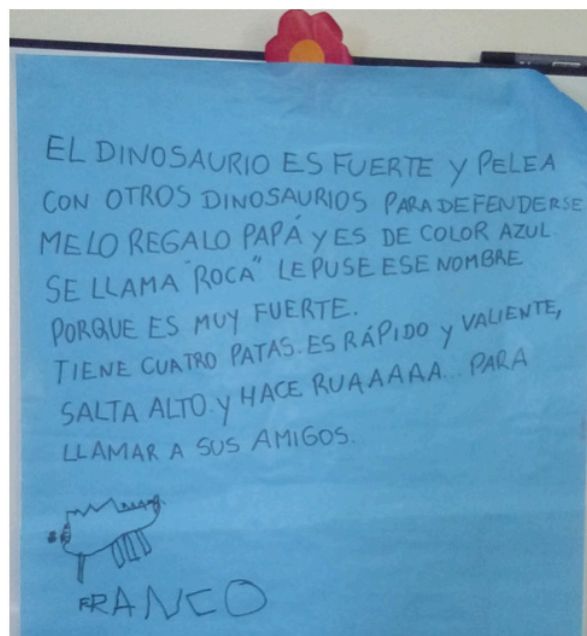 EL DINOSAURIO ES FUERTE Y PELEA
CON OTROS DINOSAURIOS PARA DEFENDERSE
ME LO REGALO PAPÁ Y ES DE COLOR AZUL
SE LLAMA "ROCA" LE PUSE ESE NOMBRE
PORQUE ES MUY FUERTE.
TIENE CUATRO PATAS. ES RÁPIDO Y VALIENTE,
SALTA ALTO. Y HACE RUAAAAA... PARA
LLAMAR A SUS AMIGOS.
FRANCO